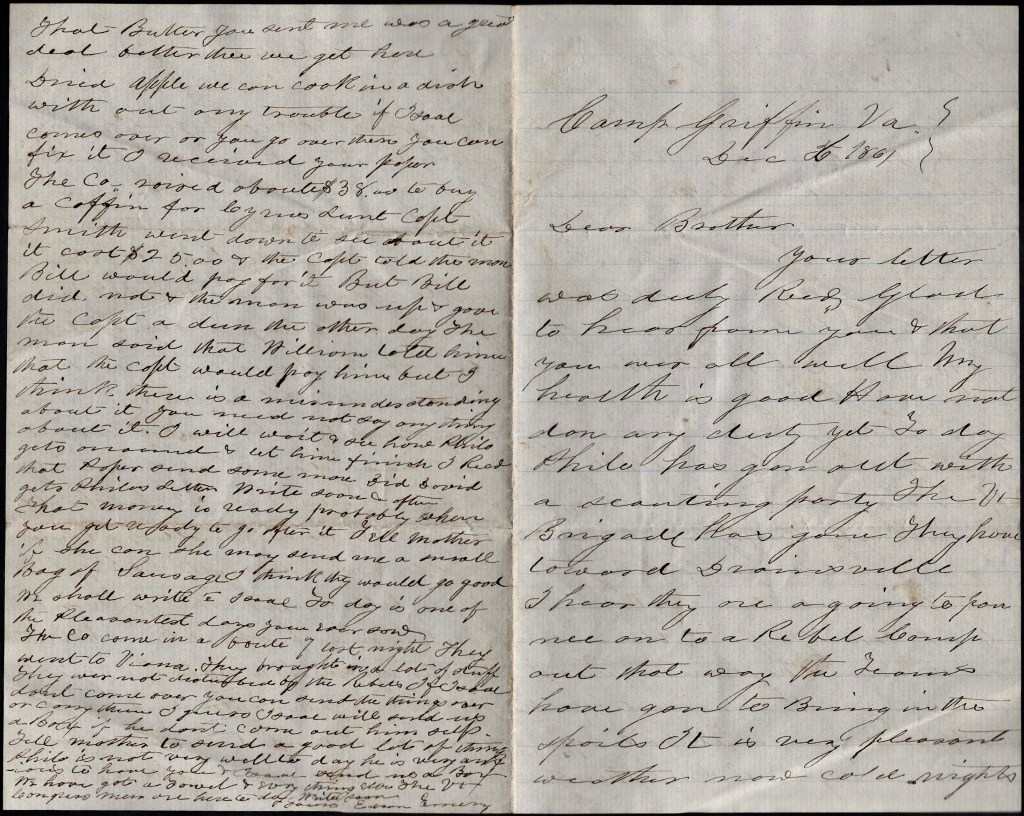 Camp Griffin Va.
Dec 6 1861
Dear Brother
Your letter
was duly Recd Glad
to hear from you & that
you wer all well My
health is good Have not
don any duty yet To day
Philo has gon out with
a scouting party The Vt
Brigade has gone They have
toward Drainsville
I hear they are a going to poun
nce on to a Rebel Camp
out that way the Teams
have gon to Bring in the
spoils It is very pleasant
weather now cold nights
That Butter you sent me was a great
deal better then we get here
Dried apple we can cook in a dish
with out any trouble if Isaac
comes over or you go over there you can
fix it I received your paper
The Co. raised about $38.00 to buy
a coffin for Cyrus Capt
Smith went down to see about it
it cost $25.00 & the Capt told the man
Bill would pay for it But Bill
did not & the man was up & gave
the Capt a dun the other day The
man said that William told him
that the capt would pay him but I
think there is a misunderstanding
about it You need not say any thing
about it. I will wait & see how Philo
gets around & let him finish I Recd
that paper send some more Did David
get Philos letter Write soon & often
That money is ready probably when
you get ready to go after it Tell Mother
if she can she may send me a small
Bag of Sausage I think they would go good
We shall write to Isaac To day is one of
the Pleasantest days you ever saw
The Co come in a bout 7 last night They
went to Viana. They brought in a lot of stuff
They wer not disturbed by the Rebels If Isaac
dont come over you can send the things over
or carry them I guess Isaac will send us
a Box if he dont come out him self.
Tell mother to send a good lot of things
Philo is not very well to day he is very anx
ious to have you & Isaac send us a Box
We have got a Towel & every thing The Vt
Congress men are here to day Write soon
Edson Emery